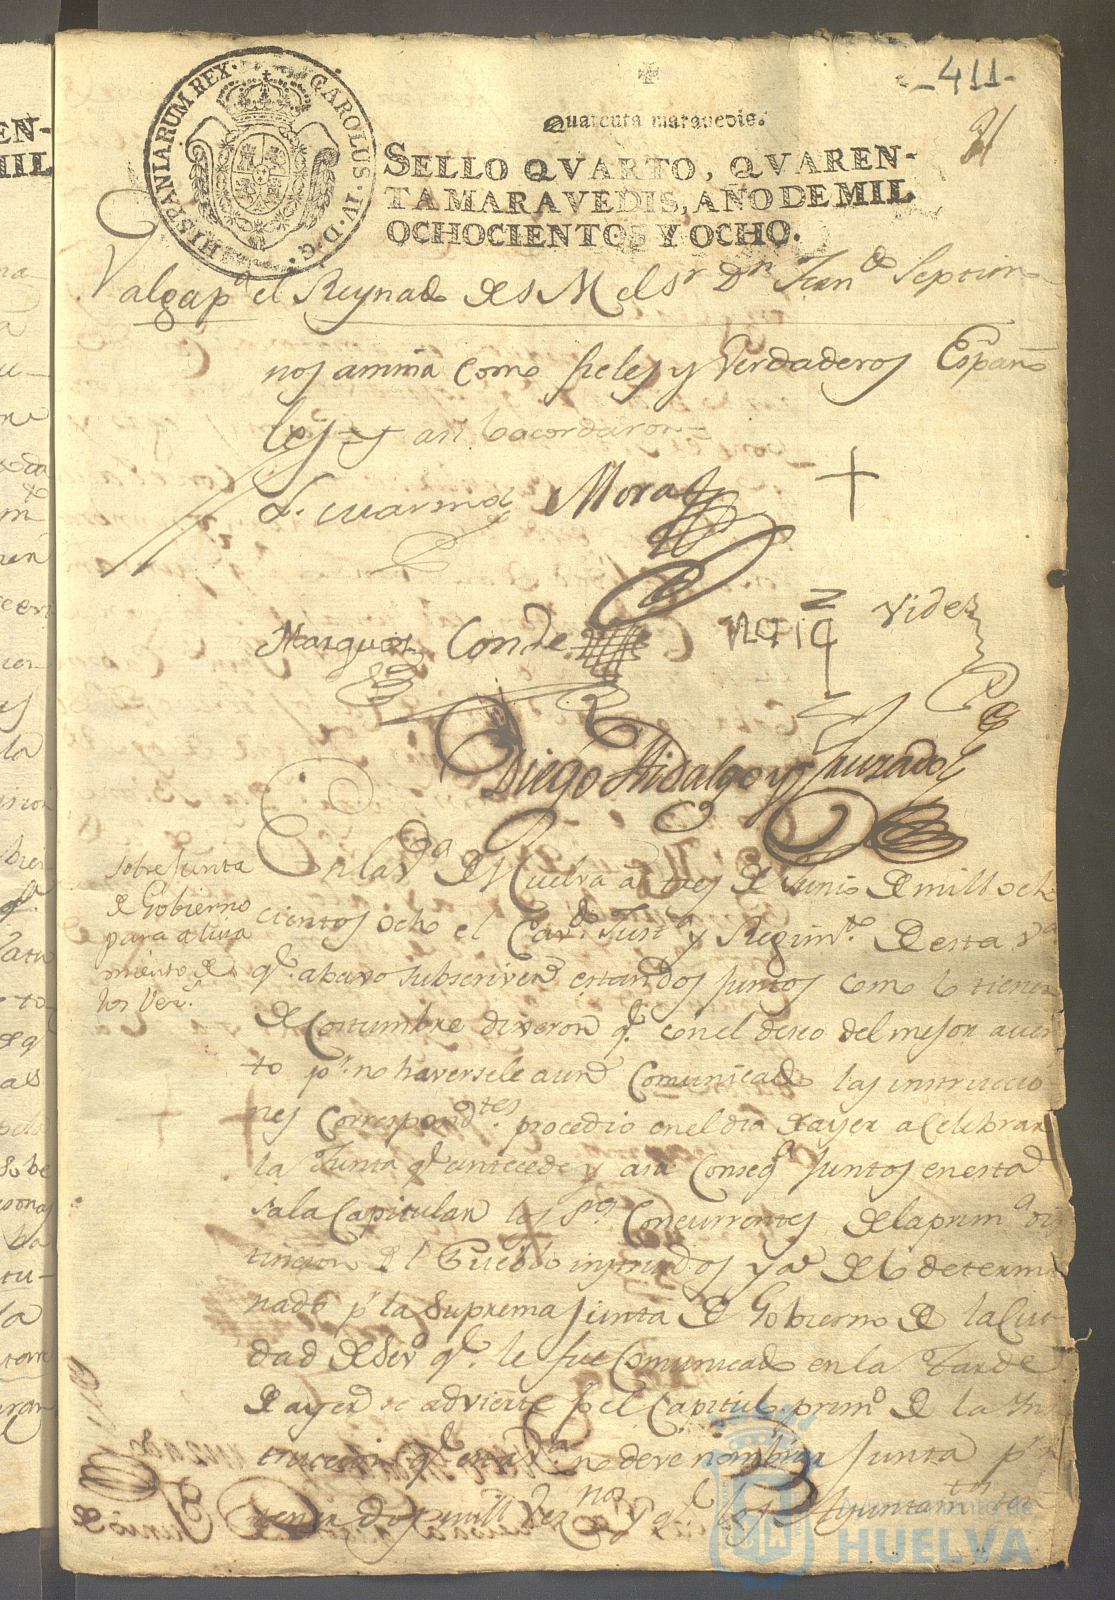 -411-
21
HISPANIARUM REX. CAROLUS. IV. D. G.
Quarenta maravedis.
SELLO QVARTO, QVAREN-
TA MARAVEDIS, AÑO DE MIL
OCHOCIENTOS Y OCHO.
Valga pª el Reynado de S M el Sr Dn Ferndo Septimo
nos anima como fieles y Verdaderos Españo
les y asi lo acordaron=
Moral
Marquez Conde Videz
Diego Hidalgo y Cruzado
Sobre Junta
de Gobierno
para alista
miento de
los Vezs.
En la Vª de Huelva a tres de Junio de mill ocho
cientos ocho el Cavdo Justª y Regimto de esta vª
qe. abaxo subscriven estando juntos como lo tienen
de costumbre dixeron qe. con el deseo del mejor acier
to pr. no haversele aun Comunicado las instruccio
nes correspondtes. procedio en el dia de ayer a celebrar
la Junta qe antecede y a su conseqª juntos en esta
sala Capitular los Sres Concurrentes de la primª dis
tincion del Pueblo instruidos ya de lo determi
nado pr la Suprema Junta de Gobierno de la Ciu
dad de Sevª qe. le fue Comunicado en la tarde
de ayer se advierte pr el Capitul. primo de la Ins
truccion qe. esta Vª no deve nombrar Junta pr. no
tener dos mill Veznos y qe los Ayuntamtos
EN-
MIL
Ayuntamiento de
HUELVA